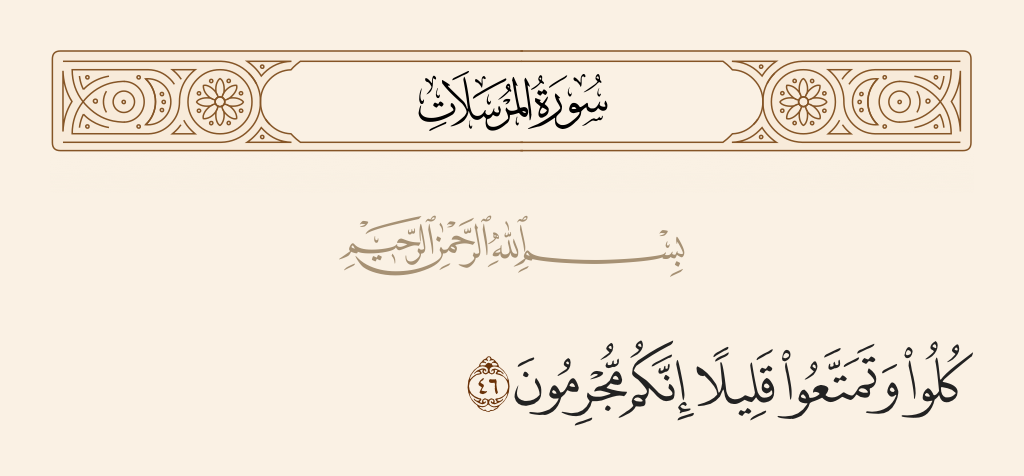 سُورَةُ المُرْسَلَاتِ
بِسْمِ ٱللَّهِ ٱلرَّحْمَٰنِ ٱلرَّحِيمِ
كُلُوا۟ وَتَمَتَّعُوا۟ قَلِيلًا إِنَّكُم مُّجْرِمُونَ ٤٦